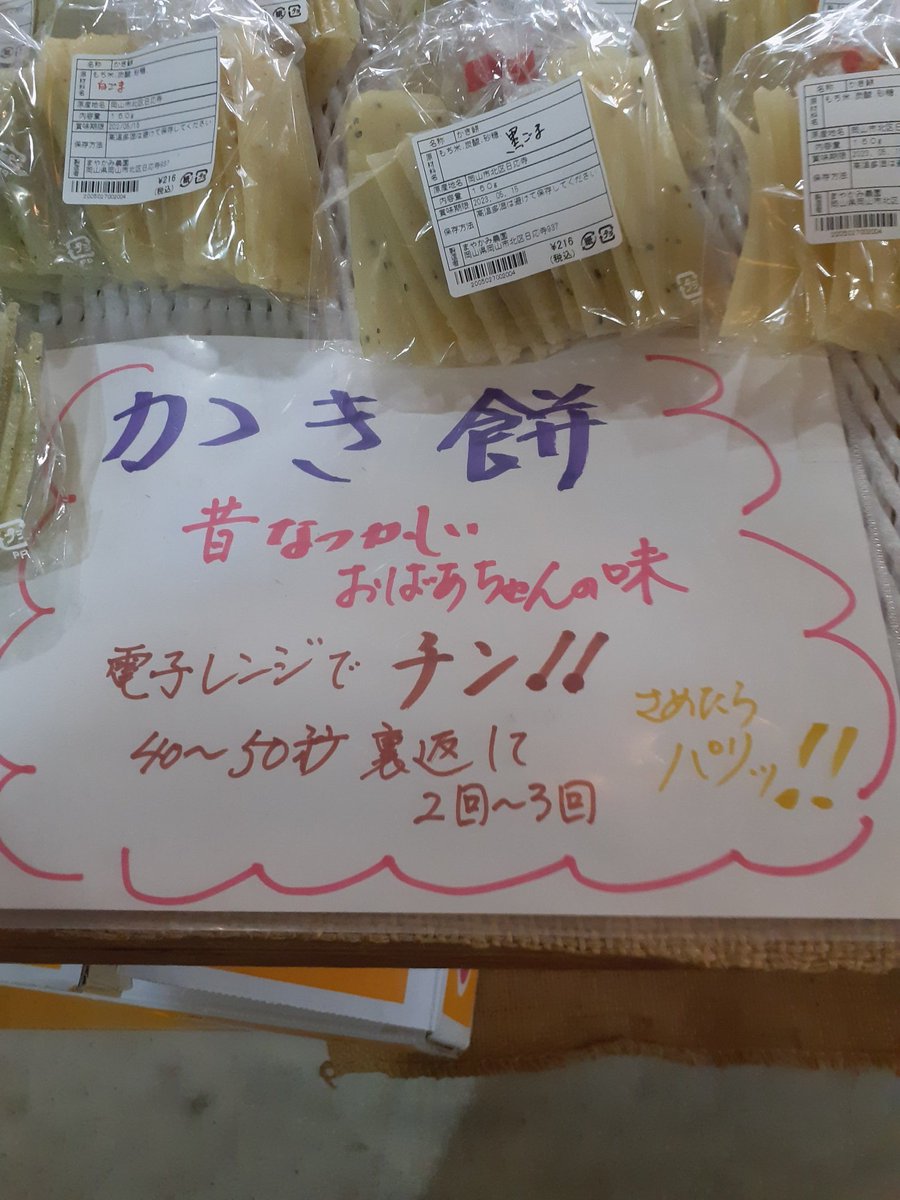 名称 かき餅
原材料名 もち米、炭酸、砂糖
白ごま
原産地名 岡山市北区日応寺
内容量 160g
保存方法 高温多湿は避けて保存してください
まやかみ農園
岡山県岡山市北区日応寺937
¥216
(税込)
2005027002004
名称 かき餅
原材料名 もち米、炭酸、砂糖、黒ごま
原産地名 岡山市北区日応寺
内容量 160g
賞味期限 2023.05.16
保存方法 高温多湿は避けて保存してください
製造者 まやかみ農園
岡山県岡山市北区日応寺937
¥216
(税込)
2005027002004
名称 かき餅
もち米、炭酸、砂糖
原産地名 岡山市北
内容量 160g
保存方法 高温多湿
まやかみ農園
岡山県岡山市北
かき餅
昔なつかしい
おばあちゃんの味
電子レンジでチン!!
40〜50秒 裏返して
2回〜3回
さめたら
パリッ!!